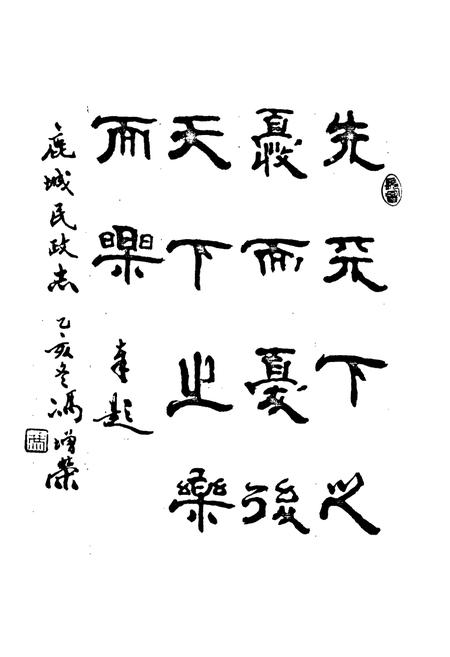 先天下之
憂而憂後
天下之樂
而樂 奉題
鹿城民政志 乙亥冬 馮增榮